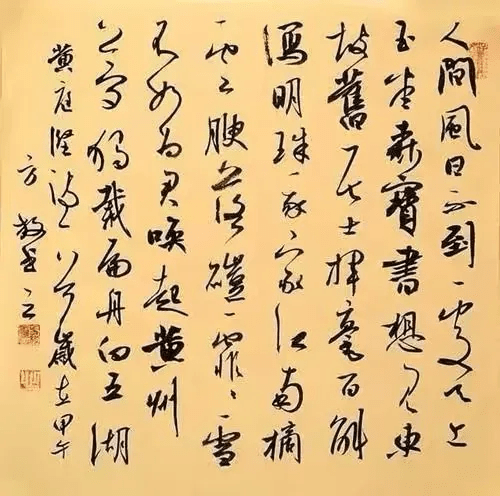 人間風日不到處天上
玉堂森寶書想見東
坡舊居士揮毫百斛
瀉明珠我家江南摘
雲腴落磑霏〻雪
不如为君喚起黄州
夢獨載扁舟向五湖
黄庭堅詩一首歲在甲午
方